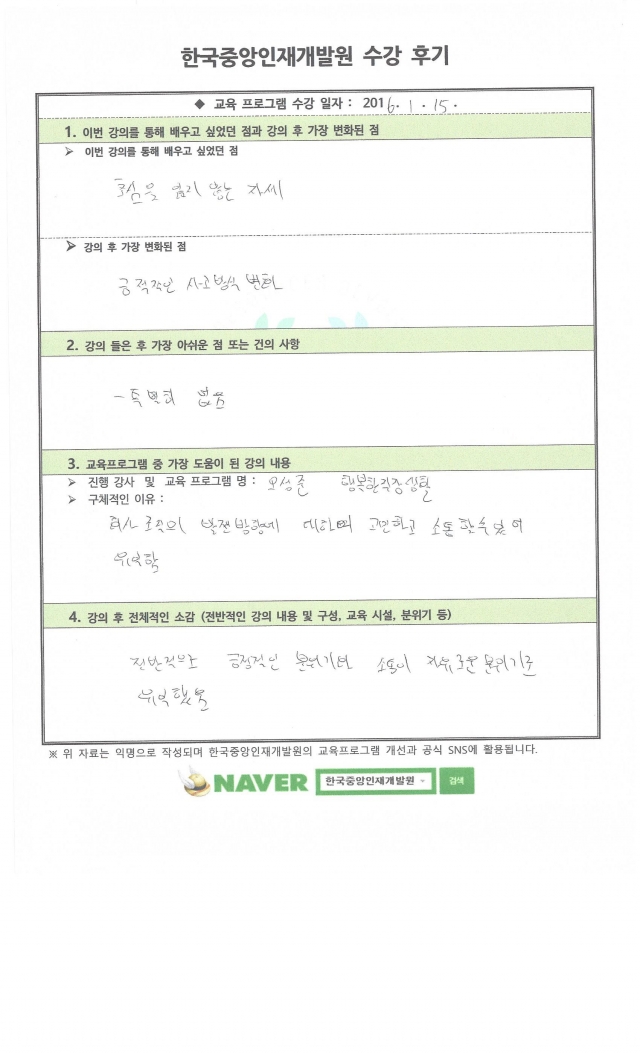 한국중앙인재개발원 수강 후기
◆ 교육 프로그램 수강 일자 : 2016. 1. 15.
1. 이번 강의를 통해 배우고 싶었던 점과 강의 후 가장 변화된 점
➢ 이번 강의를 통해 배우고 싶었던 점
초심을 잃지 않는 자세
➢ 강의 후 가장 변화된 점
긍정적인 사고방식 변화
2. 강의 들은 후 가장 아쉬운 점 또는 건의 사항
- 특별히 없음
3. 교육프로그램 중 가장 도움이 된 강의 내용
➢ 진행 강사 및 교육 프로그램 명 : 오성준 행복한직장생활
➢ 구체적인 이유 :
회사 조직의 발전방향에 대하여 고민하고 소통할수 있어
유익함
4. 강의 후 전체적인 소감 (전반적인 강의 내용 및 구성, 교육 시설, 분위기 등)
전반적으로 긍정적인 분위기와 소통이 자유로운 분위기로
유익했음
※ 위 자료는 익명으로 작성되며 한국중앙인재개발원의 교육프로그램 개선과 공식 SNS에 활용됩니다.
NAVER 한국중앙인재개발원 검색